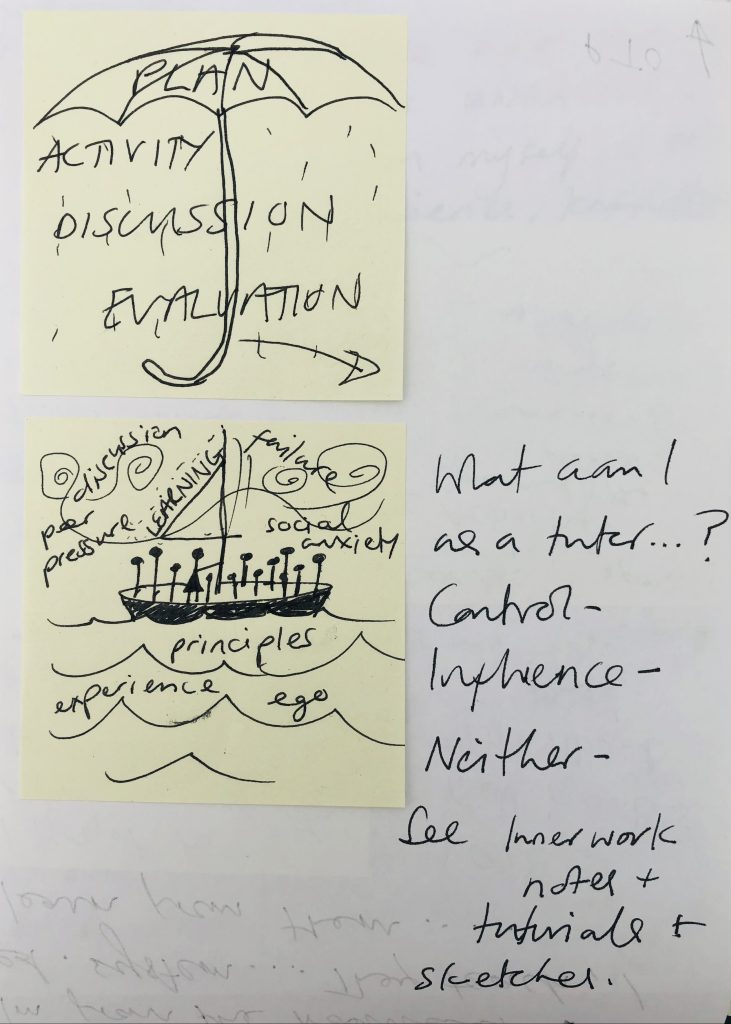 PLAN
ACTIVITY
DISCUSSION
EVALUATION
discussion
failure
LEARNING
peer
pressure
social
anxiety
principles
experience ego
What can I
as a tutor...?
Control-
Influence-
Neither-
See Innerwork
notes +
tutorials +
sketches.